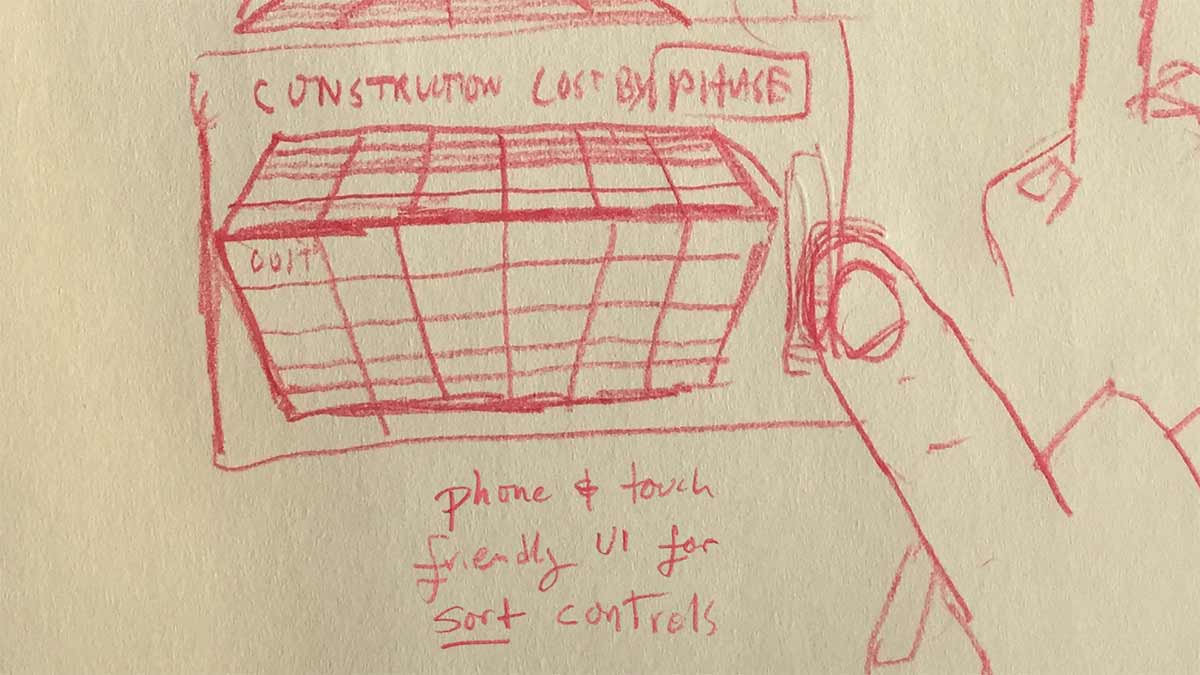 CONSTRUCTION COST BY PHASE
phone & touch
friendly UI for
sort controls